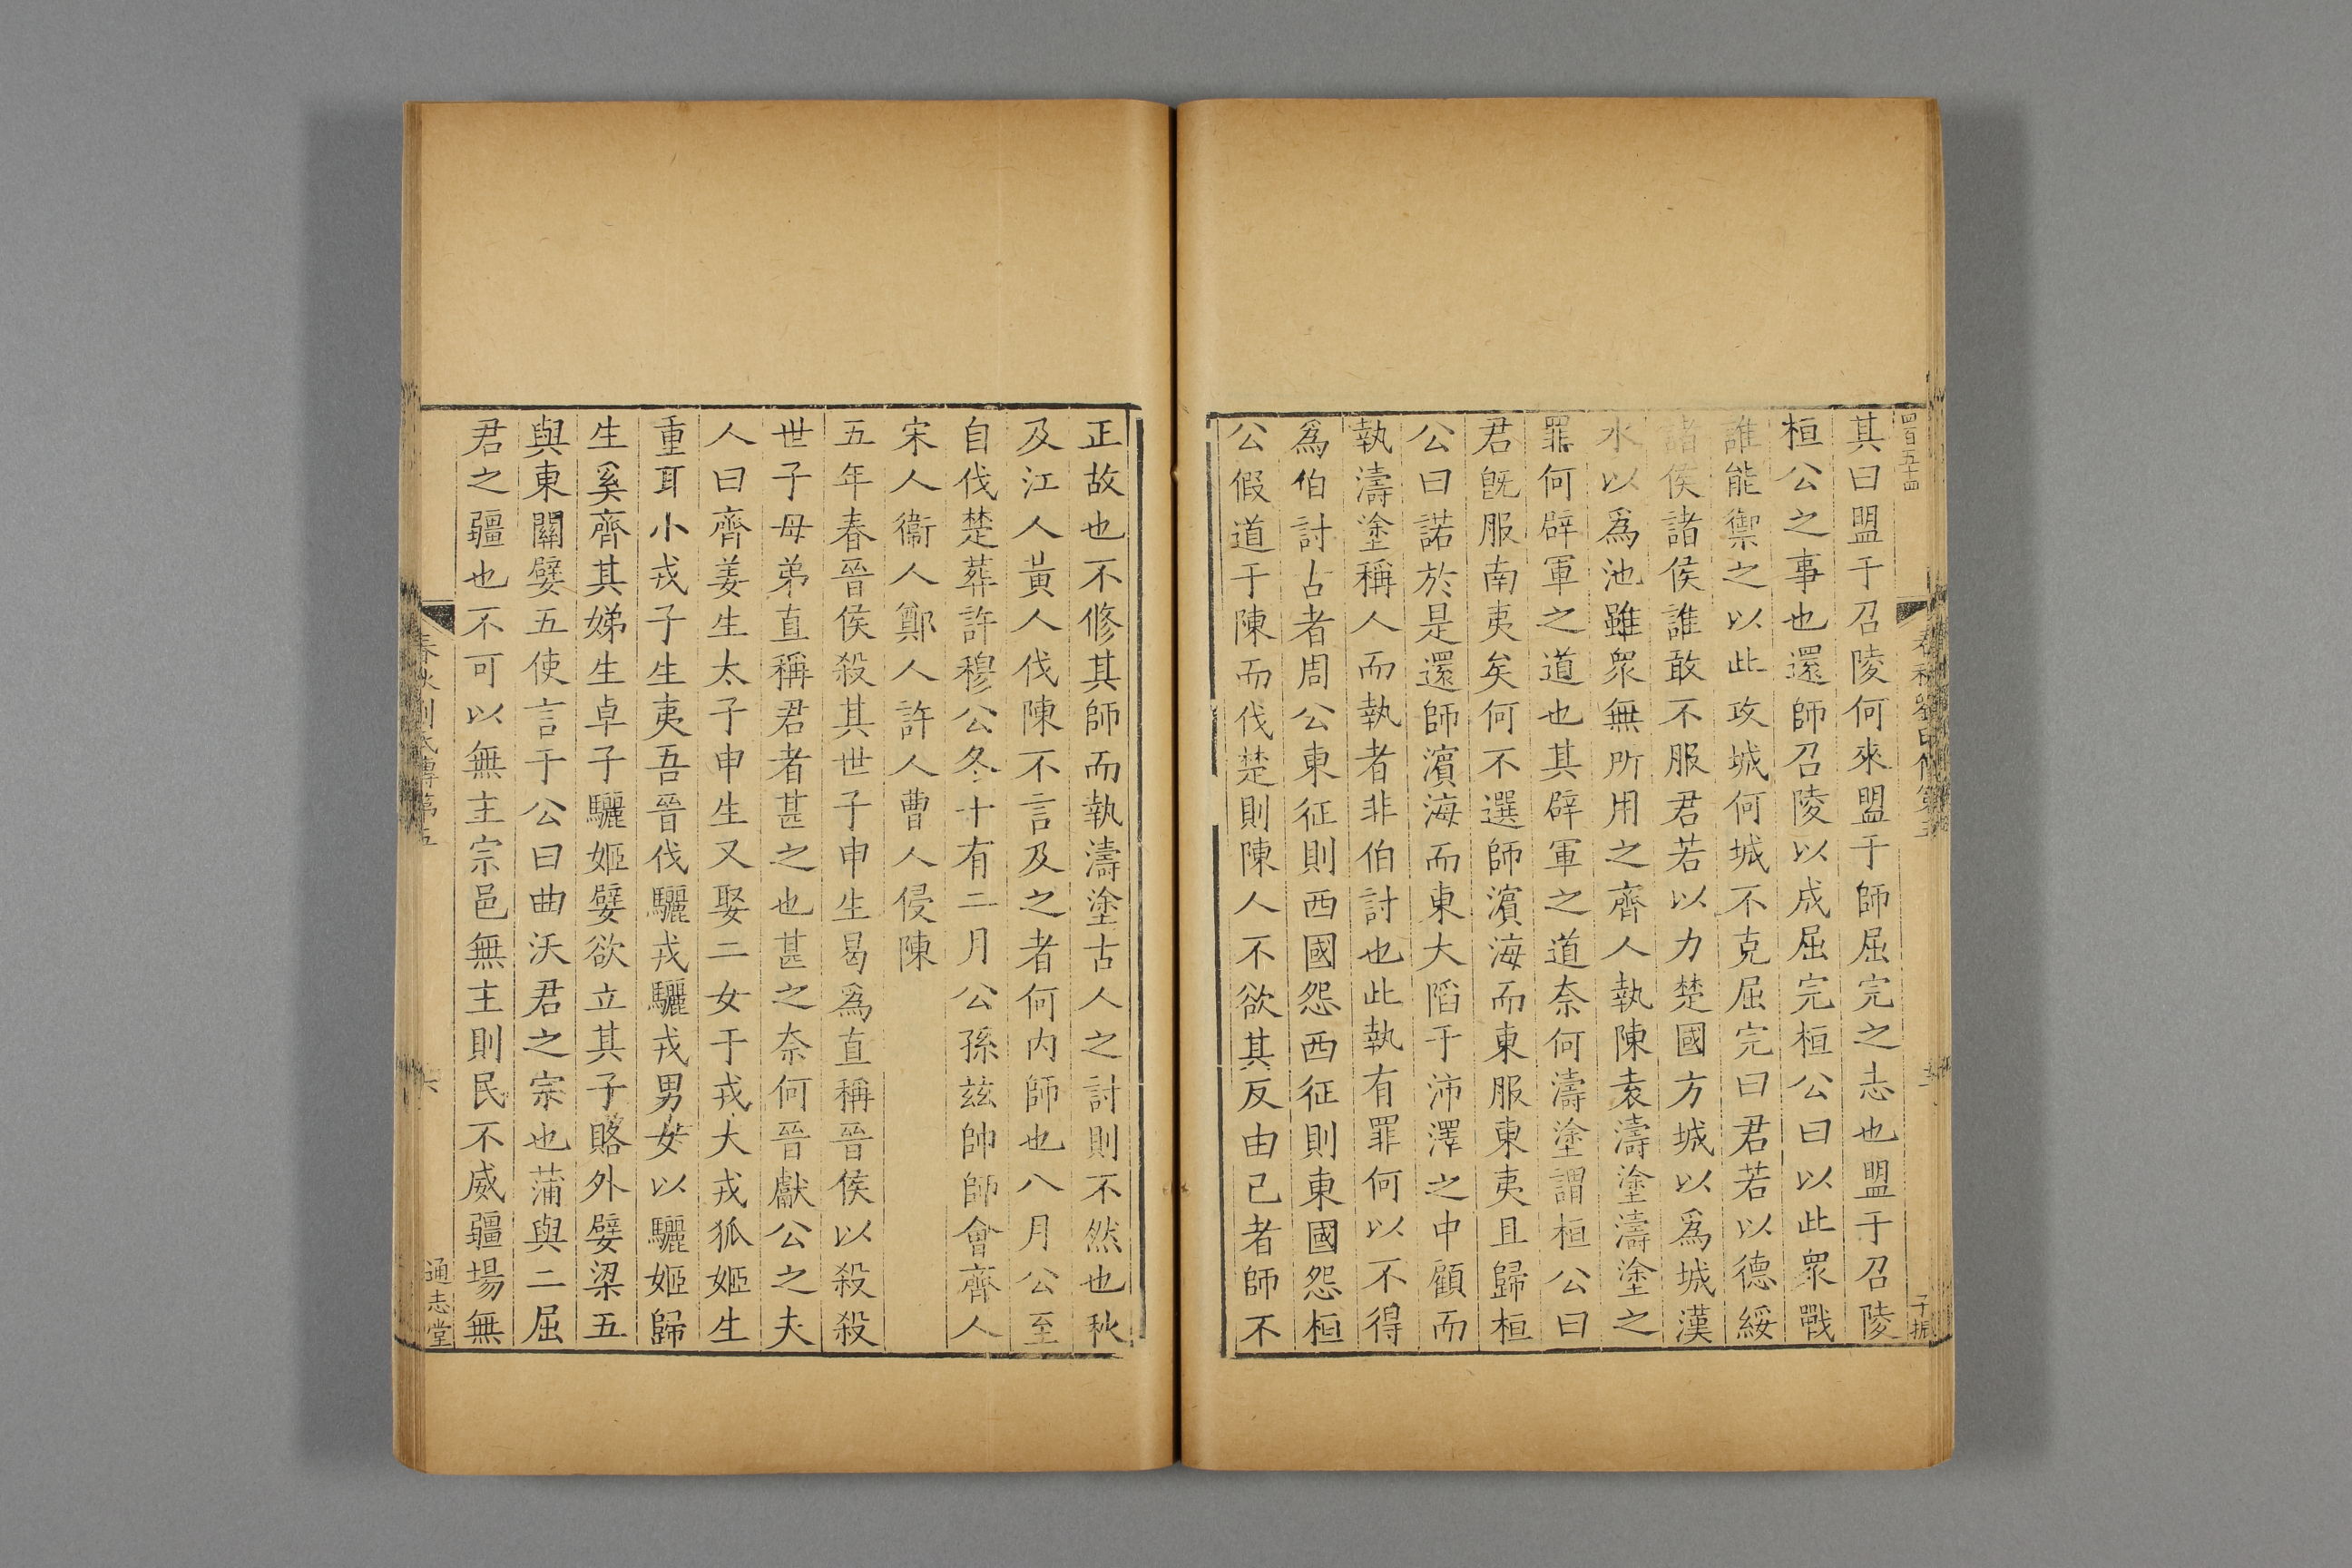 四百五十四
其曰盟于召陵何來盟于師屈完之志也盟于召陵
桓公之事也還師召陵以成屈完桓公曰以此衆戰
誰能禦之以此攻城何城不克屈完曰君若以德綏
諸侯諸侯誰敢不服君若以力楚國方城以爲城漢
水以爲池雖衆無所用之齊人執陳袁濤塗濤塗之
罪何辟軍之道也其辟軍之道奈何濤塗謂桓公曰
君旣服南夷矣何不選師濱海而東服東夷且歸桓
公曰諾於是還師濱海而東大陷于沛澤之中顧而
執濤塗稱人而執者非伯討也此執有罪何以不得
爲伯討古者周公東征則西國怨西征則東國怨桓
公假道于陳而伐楚則陳人不欲其反由己者師不
正故也不修其師而執濤塗古人之討則不然也秋
及江人黃人伐陳不言及之者何内師也八月公至
自伐楚葬許穆公冬十有二月公孫茲帥師會齊人
宋人衞人鄭人許人曹人侵陳
五年春晉侯殺其世子申生曷爲直稱晉侯以殺殺
世子母弟直稱君者甚之也甚之奈何晉獻公之夫
人曰齊姜生太子申生又娶二女于戎大戎狐姬生
重耳小戎子生夷吾晉伐驪戎驪戎男女以驪姬歸
生奚齊其娣生卓子驪姬嬖欲立其子賂外嬖梁五
與東關嬖五使言于公曰曲沃君之宗也蒲與二屈
君之疆也不可以無主宗邑無主則民不威疆場無
春秋劉氏傳第五
六
通志堂